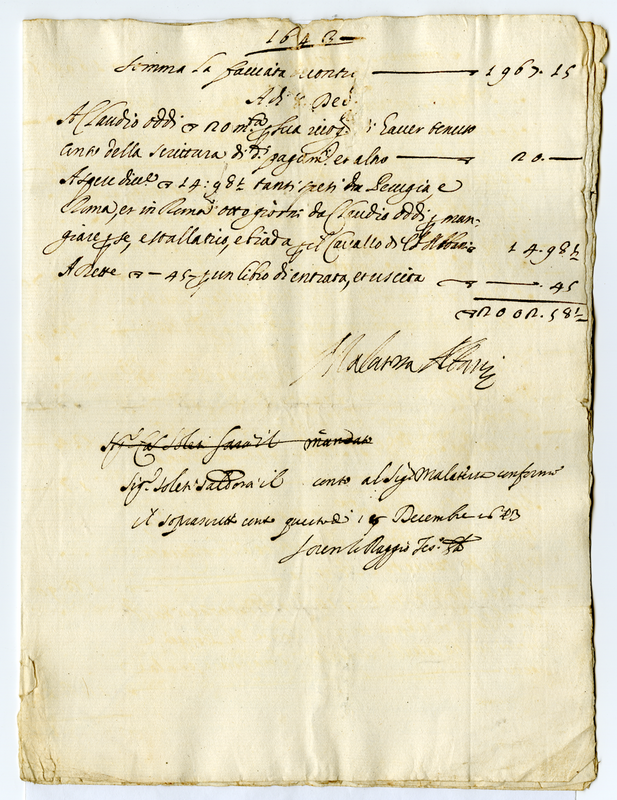 1643
Somma la facciata contro — 1967.15
Adi 8 Dec.
A Claudio Oddi ▽ 20 m.ta p sua ricog.ne di haver tenuto
conto della scrittura di d.i pagam.ti et altro — 20.—
A spese dive.e ▽ 14:98½ tanti spesi da Perugia e
Roma, et in Roma otto giorni da Claudio Oddi p man-
giare p se, e stallatico, e biada p il Cavallo di 14.98½
A dette ▽ —45— p un libro di entrata, et uscita ▽ —.45
▽ 2002.58½
Malatesta Albani
Sig.r Soleti saldarà il conto al Sig.r Malatesta conforme
il soprascritto conto questo dì 18 Decembre 1643
Loren Raggio Tes.